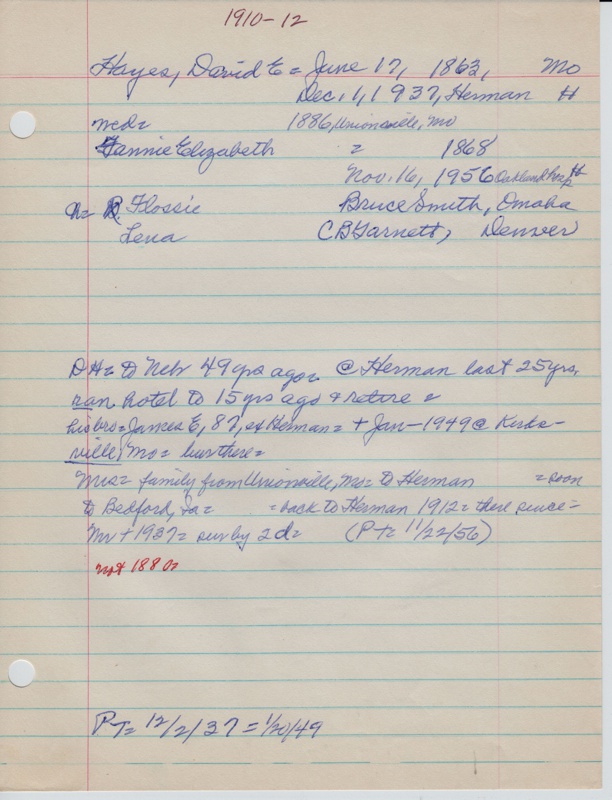 1910-12
Hayes, David E = June 17, 1863, Mo
Dec. 1, 1937, Herman H
med= 1886, Unionville, Mo
Fannie Elizabeth = 1868
Nov. 16, 1956 Oakland hosp H
D. Flossie Bruce Smith, Omaha
Lena C B Garnett, Denver
DH= to Nebr 49 yrs ago= @ Herman last 25 yrs,
ran hotel to 15 yrs ago & retire =
his bro= James E, 82, ex Herman= + Jan-1949 @ Kirks-
ville, Mo= bur there=
Mrs= family from Unionville, Mo= to Herman =soon
to Bedford, Ia= =back to Herman 1912= there since=
Mr + 1937= sur by 2 d= (PT= 11/22/56)
not 1880=
PT= 12/2/37 = 1/20/49